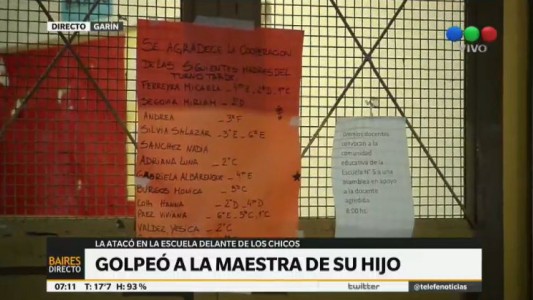 DIRECTO GARÍN
VIVO
SE AGRADECE LA COOPERACION
DE LAS SIGUIENTES MADRES DEL
TURNO TARDE.
FERREYRA MICAELA
MIRIAM - 2°D
ANDREA - 3°F
SILVIA SALAZAR - 5°E - 6°E
SANCHEZ NADIA
ADRIANA LUNA - 2°C
GABRIELA ALBARENQUE - 4°E
BURGOS MONICA - 5°C
HANNA - 2°D - 4°D
PAEZ VIVIANA - 6°E
VALDEZ YESICA - 2°C
docentes
convocan a la
comunidad
educativa de la
Escuela N° 5 a una
asamblea en apoyo
a la docente
agredida
8:00 hs.
LA ATACÓ EN LA ESCUELA DELANTE DE LOS CHICOS
BAIRES
DIRECTO
GOLPEÓ A LA MAESTRA DE SU HIJO
07:11 T: 17'7 H: 93 % twitter @telefenoticias